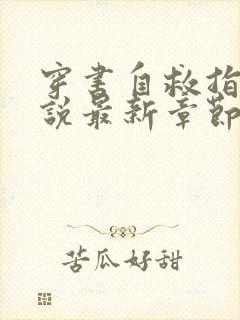 穿书自救指
说最新章節
苦瓜好甜